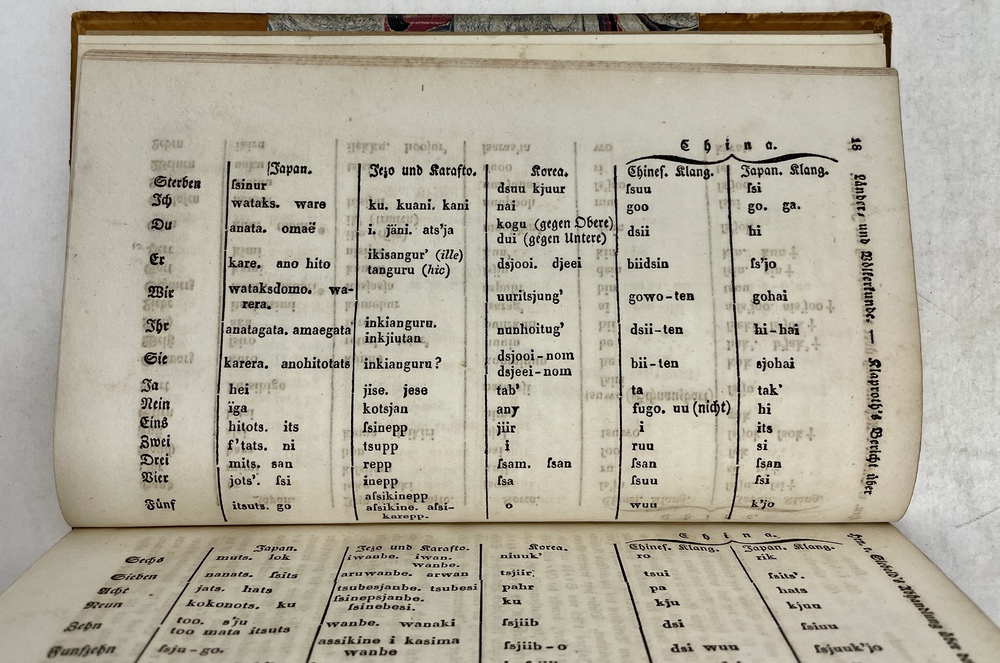 China.
18
Japan. Jezo und Karafto. Korea. Chines. Klang. Japan. Klang.
Sterben ſsinur dsuu kjuur ſsuu ſsi
Ich wataks. ware ku. kuani. kani nai goo go. ga.
Du anata. omaë i. jäni. ats'ja kogu (gegen Obere) dsii hi
dui (gegen Untere)
Er kare. ano hito ikisangur' (ille) dsjooi. djeei biidsin ſs'jo
tanguru (hic)
Wir wataksdomo. wa- uuritsjung' gowo-ten gohai
rera.
Ihr anatagata. amaegata inkianguru. nunhoitug' dsii-ten hi-hai
inkjiutan
Sie karera. anohitotats inkianguru? dsjooi-nom bii-ten sjohai
dsjeei-nom
Ja hei jise. jese tab' ta tak'
Nein ïga kotsjan any fugo. uu (nicht) hi
Eins hitots. its ſsinepp jiir i its
Zwei f'tats. ni tsupp i ruu si
Drei mits. san repp ſsam. ſsan ſsan ſsan
Vier jots'. ſsi inepp ſsa ſsuu ſsi
Fünf itsuts. go aſsikinepp o wuu k'jo
aſsikine. aſsi-
karepp.
Länder- und Völkerkunde. — Klaproth's Bericht über
China.
Japan. Jezo und Karafto. Korea. Chines. Klang. Japan. Klang.
Sechs muts. lok iwanbe. iwan. niuuk' ro rik
wanbe.
Sieben nanats. ſsits aruwanbe. arwan tsjiir tsui ſsits'.
Acht jats. hats tsubesjanbe. tsubesi pahr pa hats
Neun kokonots. ku ſsinepsjanbe. ku kju kjuu
ſsinebesi.
Zehn too. s'ju wanbe. wanaki ſsjiib dsi ſsiuu
too mata itsuts
Funfzehn ſsju-go. assikine i kasima ſsjiib-o dsi wuu ſsjuuk'jo
wanbe